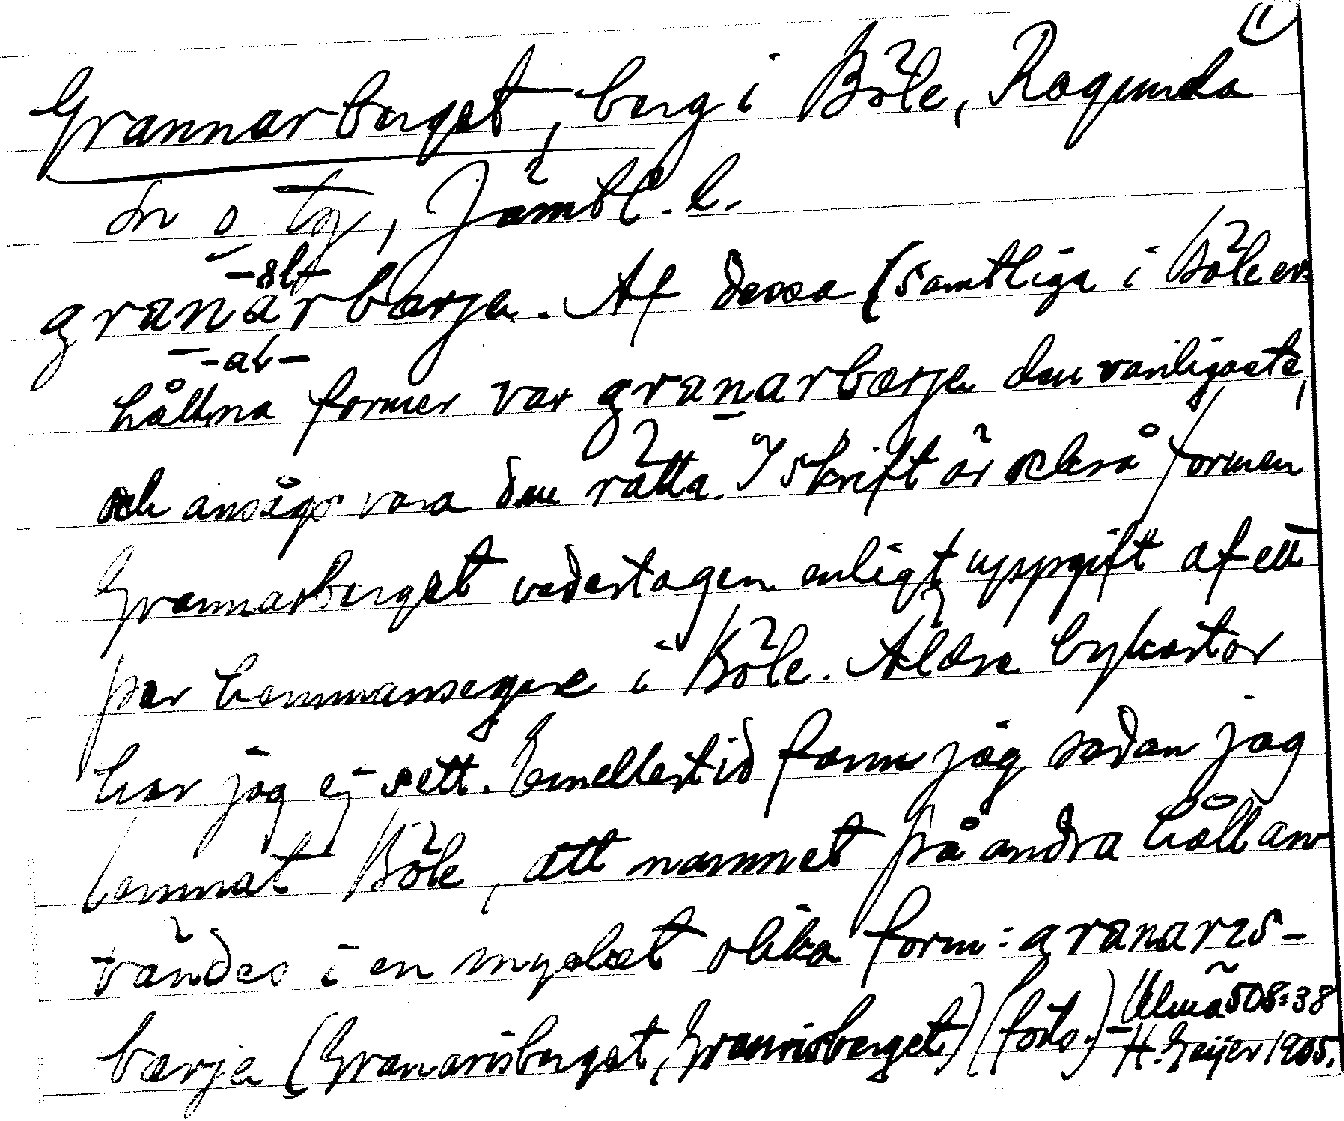 1)
Grannarberget, berg i Böle, Ragunda
sn o tg, Jämtl. l.
-äl-
granarbærje. Af dessa (samtliga i Böle er-
-at-
hållna former var granarbærje den vanligaste,
och ansågs vara den rätta. I skrift är också formen
Grannarberget vedertagen enligt uppgift af ett
par hemmansegare i Böle. Äldre bykartor
har jag ej sett. Emellertid fann jag sedan jag
lemnat Böle, att namnet på andra håll an-
vändes i en mycket olika form: granaris-
bærje (Granarisberget, Grannisberget) (forts.) – Ulma 508:38
H. Geijer 1905.